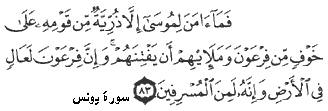 فَمَآ ءَامَنَ لِمُوسَىٰٓ إِلَّا ذُرِّيَّةٌ مِّن قَوْمِهِۦ عَلَىٰ
خَوْفٍ مِّن فِرْعَوْنَ وَمَلَإِي۟هِمْ أَن يَفْتِنَهُمْ ۚ وَإِنَّ فِرْعَوْنَ لَعَالٍ
فِى ٱلْأَرْضِ وَإِنَّهُۥ لَمِنَ ٱلْمُسْرِفِينَ ٨٣
سورة يونس